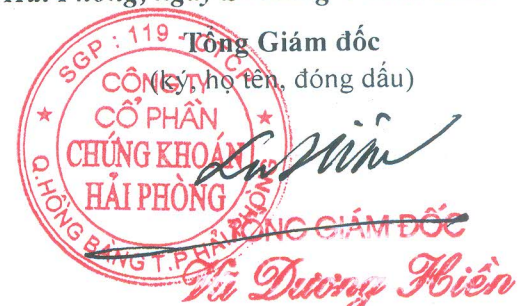 Tổng Giám đốc
(ký, họ tên, đóng dấu)
SGP : 119
CÔNG TY
CỔ PHẦN
CHỨNG KHOÁN
HẢI PHÒNG
Q.HỒNG BÀNG T.P HẢI PHÒNG
TỔNG GIÁM ĐỐC
Vũ Dương Hiền